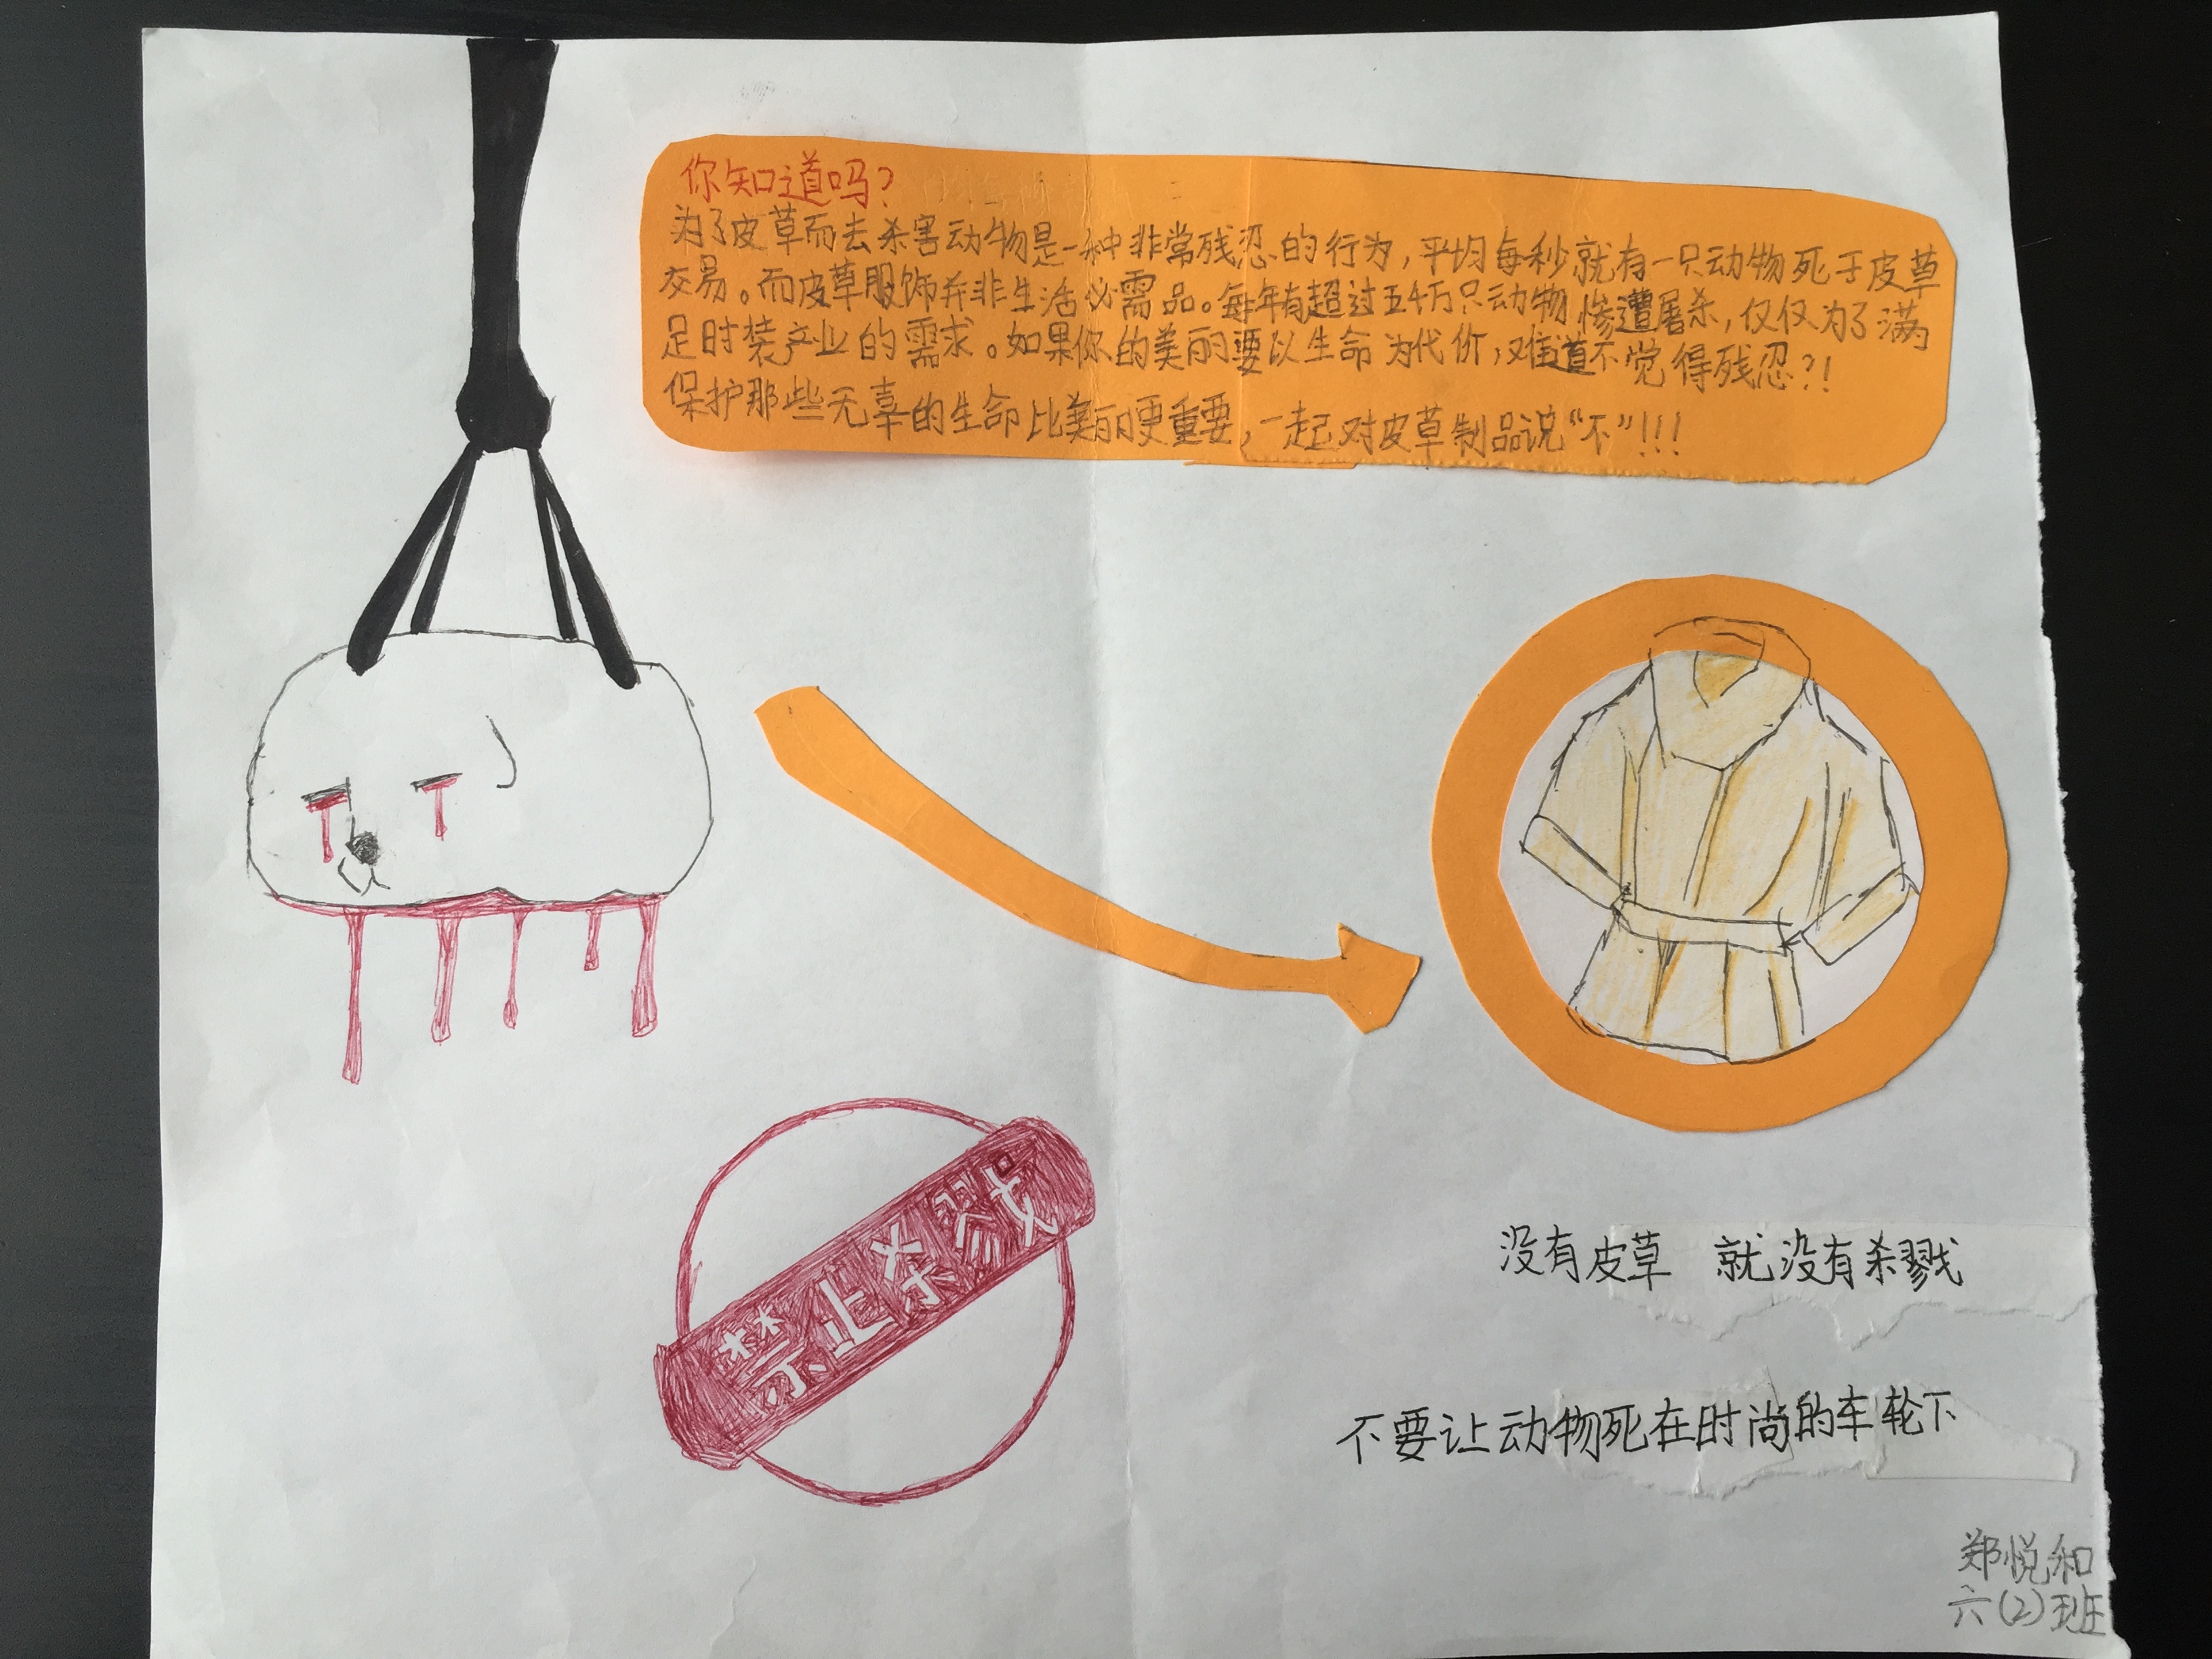 你知道吗?
为了皮草而去杀害动物是一种非常残忍的行为,平均每秒就有一只动物死于皮草
交易。而皮草服饰并非生活必需品。每年有超过五千万只动物惨遭屠杀,仅仅为了满
足时装产业的需求。如果你的美丽要以生命为代价,难道不觉得残忍?!
保护那些无辜的生命比美丽更重要,一起对皮草制品说“不”!!!
禁止杀戮
没有皮草 就没有杀戮
不要让动物死在时尚的车轮下
郑悦和
六(2)班